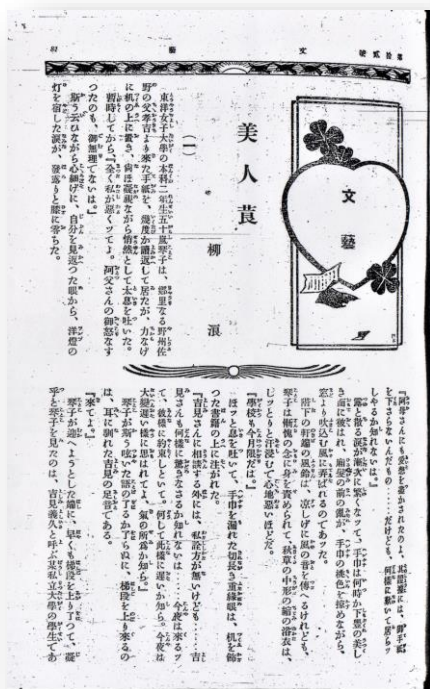 第拾貳號
文
藝
81
文藝
美人莨
柳浪
(一)
東洋女子大學の本科二年生五十嵐琴子は、鄕里なる野州佐
野の父孝吉より來た手紙を、幾度か讀返して居たが、力なげ
に机の上に置き、尙ほ凝視ながら悄然として太息を吐いた。
暫時してから『全く私が惡くッてよ。阿父さんの御怒なす
つたのも、御無理でないは。』
斯う云ひながら心細げに、自分を見返つた眼から、洋燈の
灯を宿した淚が、發落りと膝に零ちた。
『阿母さんにも愛想を盡かされたのよ、其證據には、御手紙
を下さらないんだもの……だけども、何樣に歎いて居らッ
しやるか知れないは。』
露と散る淚が漸次に繁くなッて、手巾は何時か下豐の美し
き面に被はれ、廂髮の前の亂が、手巾の桃色を掠めながら、
窓より吹込む風に弄ばれるのであッた。
階下の軒端の風鈴は、涼しげに風の音を傳へるけれども、
琴子は慚愧の念に身を責められて、秋草の中形の縮の浴衣は、
じッとりと汗浸むで心地惡いほどだ。
『學校も今月限だは。』
ほッと息を吐いて、手巾を漏れた切長き重緣眼は、机を飾
つた書籍の上に注がれた。
『吉見さんに相談する外には、私詮方が無いけども……吉
見さんも何樣に驚きなさるか知れないは……今夜は來るッ
て、敎樣に約束しといて、何して此樣に遲いか知ら。今夜は
大變遲い樣に思はれてよ、氣の所爲か知ら。』
琴子が斯う呟いた語の了るか了らぬに、梯段を上り來るの
は、耳に馴れた吉見の足音である。
『來てよ。』
琴子が迎へようとした端に、早くも梯段を上り了つて、凝
乎と琴子を見たのは、吉見義久と呼ぶ某私立大學の學生であ